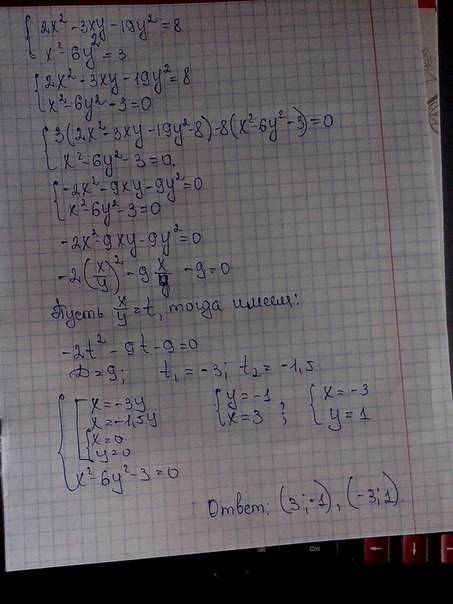 {2x² - 3xy - 19y² = 8
x² - 6y² = 3
{2x² - 3xy - 19y² = 8
x² - 6y² - 3 = 0
{3(2x² - 3xy - 19y² - 8) - 8(x² - 6y² - 3) = 0
x² - 6y² - 3 = 0.
{-2x² - 9xy - 9y² = 0
x² - 6y² - 3 = 0
-2x² - 9xy - 9y² = 0
-2(x/y)² - 9 x/y - 9 = 0
Пусть x/y = t, тогда имеем:
-2t² - 9t - 9 = 0
D = 9; t₁ = -3; t₂ = -1,5
{[x = -3y
x = -1,5y
{x = 0
y = 0
x² - 6y² - 3 = 0
{y = -1
x = 3 ;
{x = -3
y = 1
Ответ: (3; -1), (-3; 1).
Ctrl